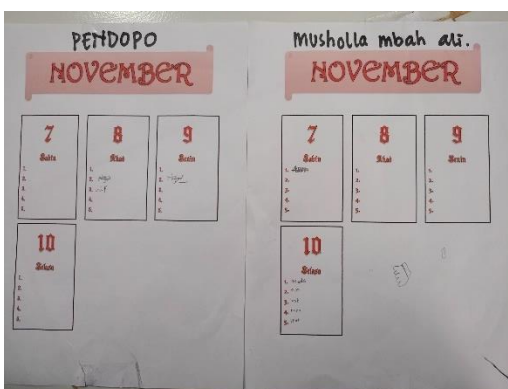 PENDOPO
NOVEMBER
7
Sabtu
1.
2.
3.
4.
5.
8
Ahad
1.
2.
3.
4.
5.
9
Senin
1.
2.
3.
4.
5.
10
Selasa
1.
2.
3.
4.
5.
Musholla mbah ali.
NOVEMBER
7
Sabtu
1.
2.
3.
4.
5.
8
Ahad
1.
2.
3.
4.
5.
9
Senin
1.
2.
3.
4.
5.
10
Selasa
1.
2.
3.
4.
5.